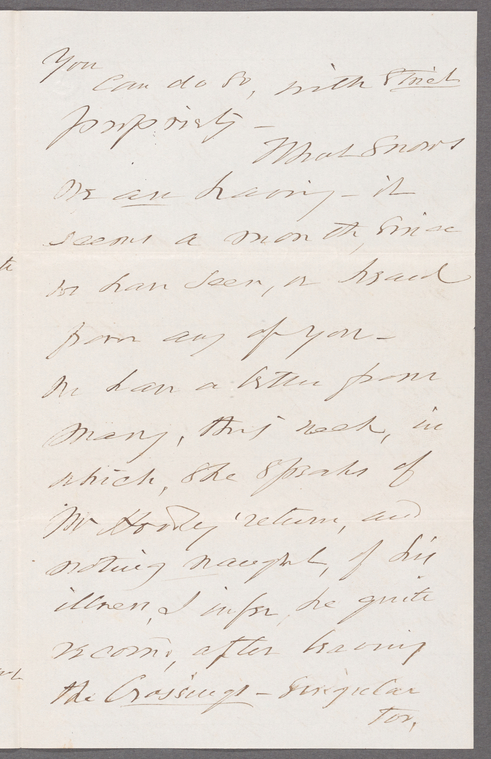 You
can do so, with strict
propriety –
What snows
we are having – it
seems a month, since
we have seen, or heard
from any of you –
We have a letter from
Mary, this week, in
which, she speaks of
Mr return, and
noting naught, of his
illness, I infer, he quite
recovd, after leaving
the Crossings – Singular
too,